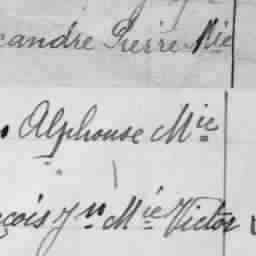 candre Pierre Mie
Alphonse Mie
çois Jn Mie Victor